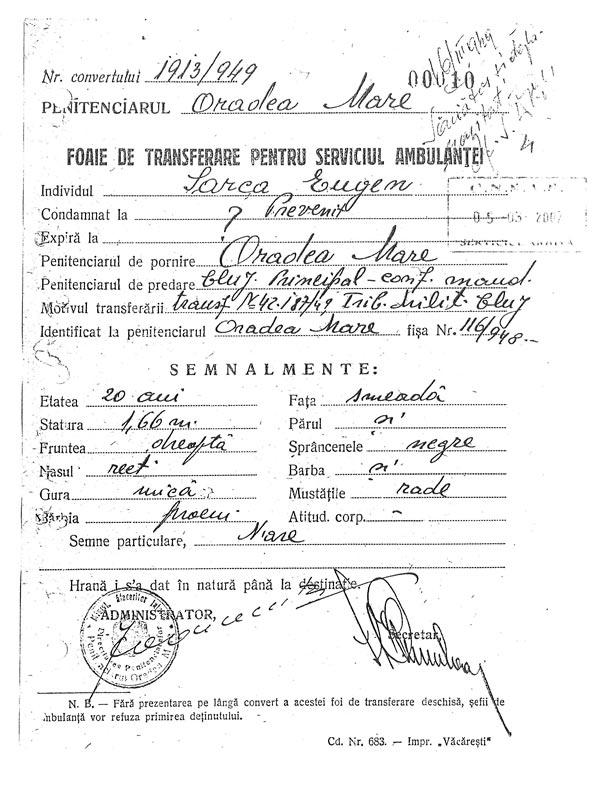 Nr. convertului 1913/949
00010
PENITENCIARUL Oradea Mare
FOAIE DE TRANSFERARE PENTRU SERVICIUL AMBULANȚEI
4
Individul Sarca Eugen
Condamnat la Prevenit
05-03-2002
Expiră la
Penitenciarul de pornire Oradea Mare
Penitenciarul de predare Cluj Principal - conf. mand.
Motivul transferării transf. 187/49 Trib. Milit. Cluj
Identificat la penitenciarul Oradea Mare fișa Nr. 116/948.-
SEMNALMENTE:
Etatea 20 ani
Statura 1,66 m.
Fruntea dreaptă
Nasul rect
Gura mică
Bărbia proem
Fața smeadă
Părul n'
Sprâncenele negre
Barba n'
Mustățile rade
Atitud. corp. -
Semne particulare, N'are
Hrană i s'a dat în natură până la destinație.
ADMINISTRATOR,
Secretar,
N. B. — Fără prezentarea pe lângă convert a acestei foi de transferare deschisă, șefii de
ambulanță vor refuza primirea deținutului.
Cd. Nr. 683. — Impr. „Văcărești"